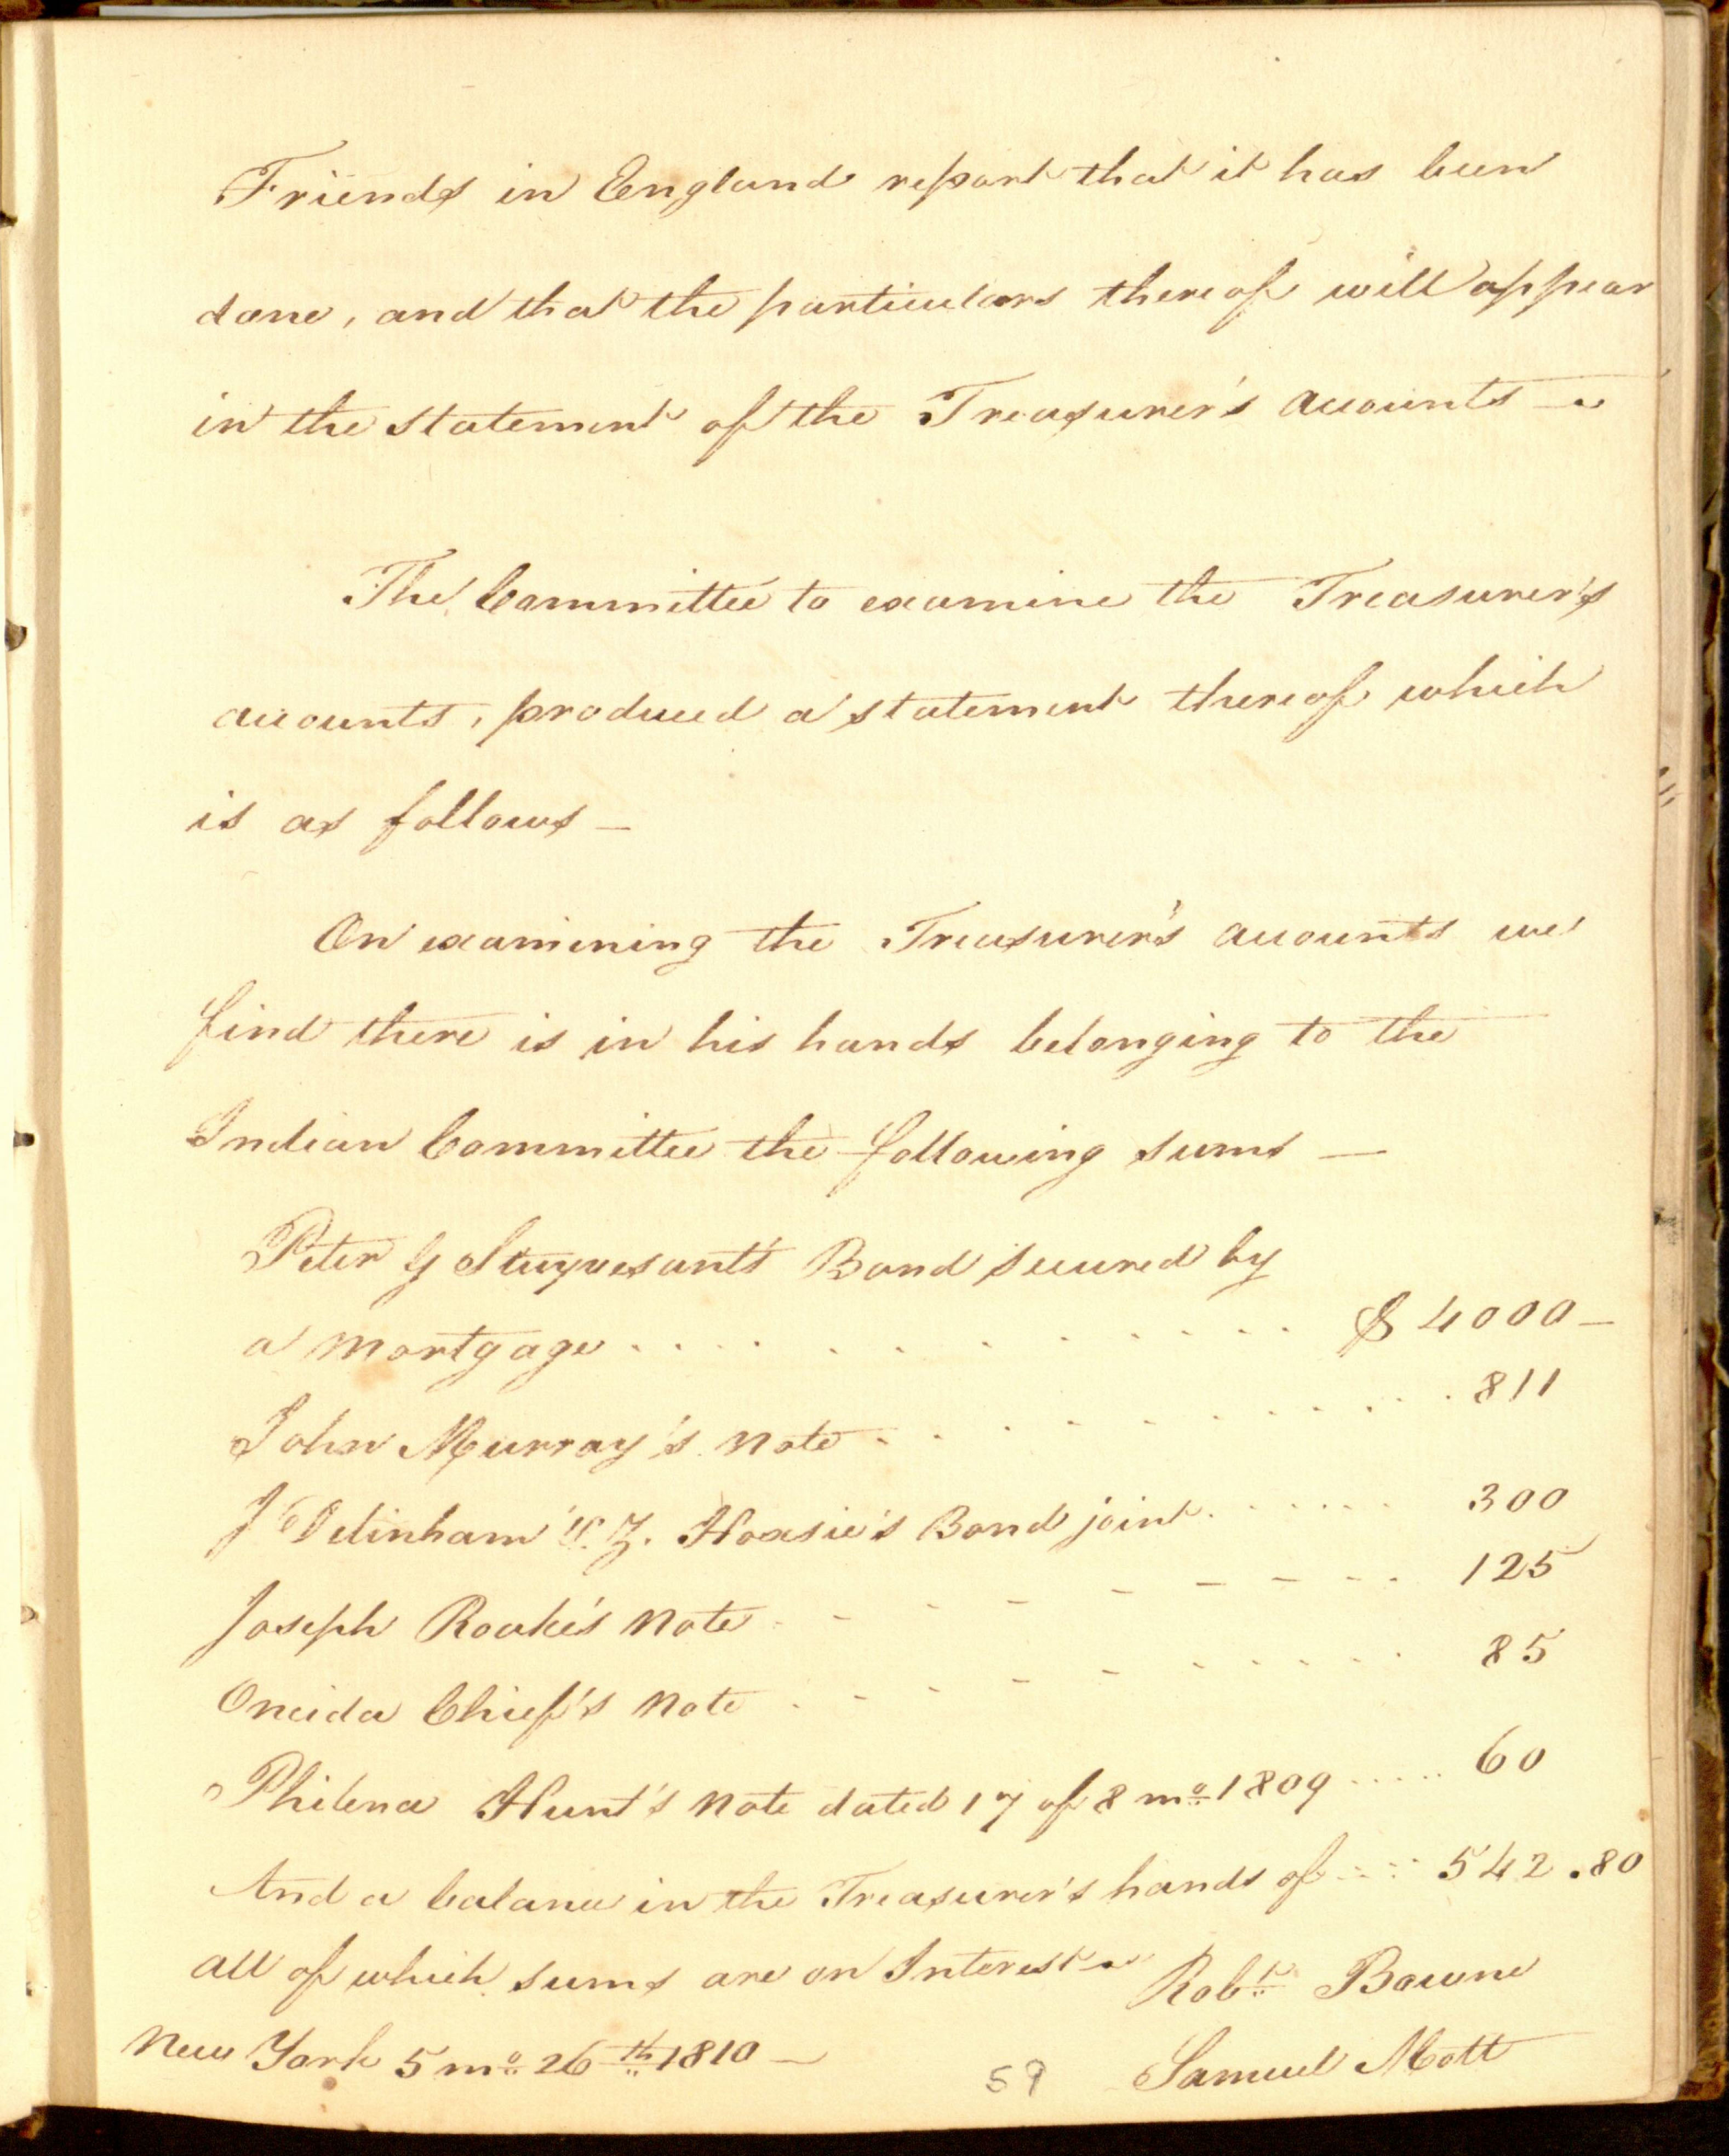 Friends in England report that it has been
done, and that the particulars thereof will appear
in the statement of the Treasurer's accounts —
The Committee to examine the Treasurer's
accounts, produced a statement thereof which
is as follows —
On examining the Treasurer's accounts we
find there is in his hands belonging to the
Indian Committee the following sums —
Peter G Stuyvesant's Bond secured by
a mortgage . . . . . . . . . . . . $ 4000 —
John Murray's note . . . . . . . . . . . . 811
J Delinham & Z. Hoxsie's Bond joint . . . . . . 300
Joseph Roake's note - - - - - - - - - 125
Oneida Chief's note - - - - - - - - - 85
Philena Hunt's note dated 17 of 8 mo 1809 . . . . . 60
And a balance in the Treasurer's hands of . . . 542.80
all of which sums are on Interest —
Robt Bowne
New York 5 mo 26th 1810 —
Samuel Mott
59